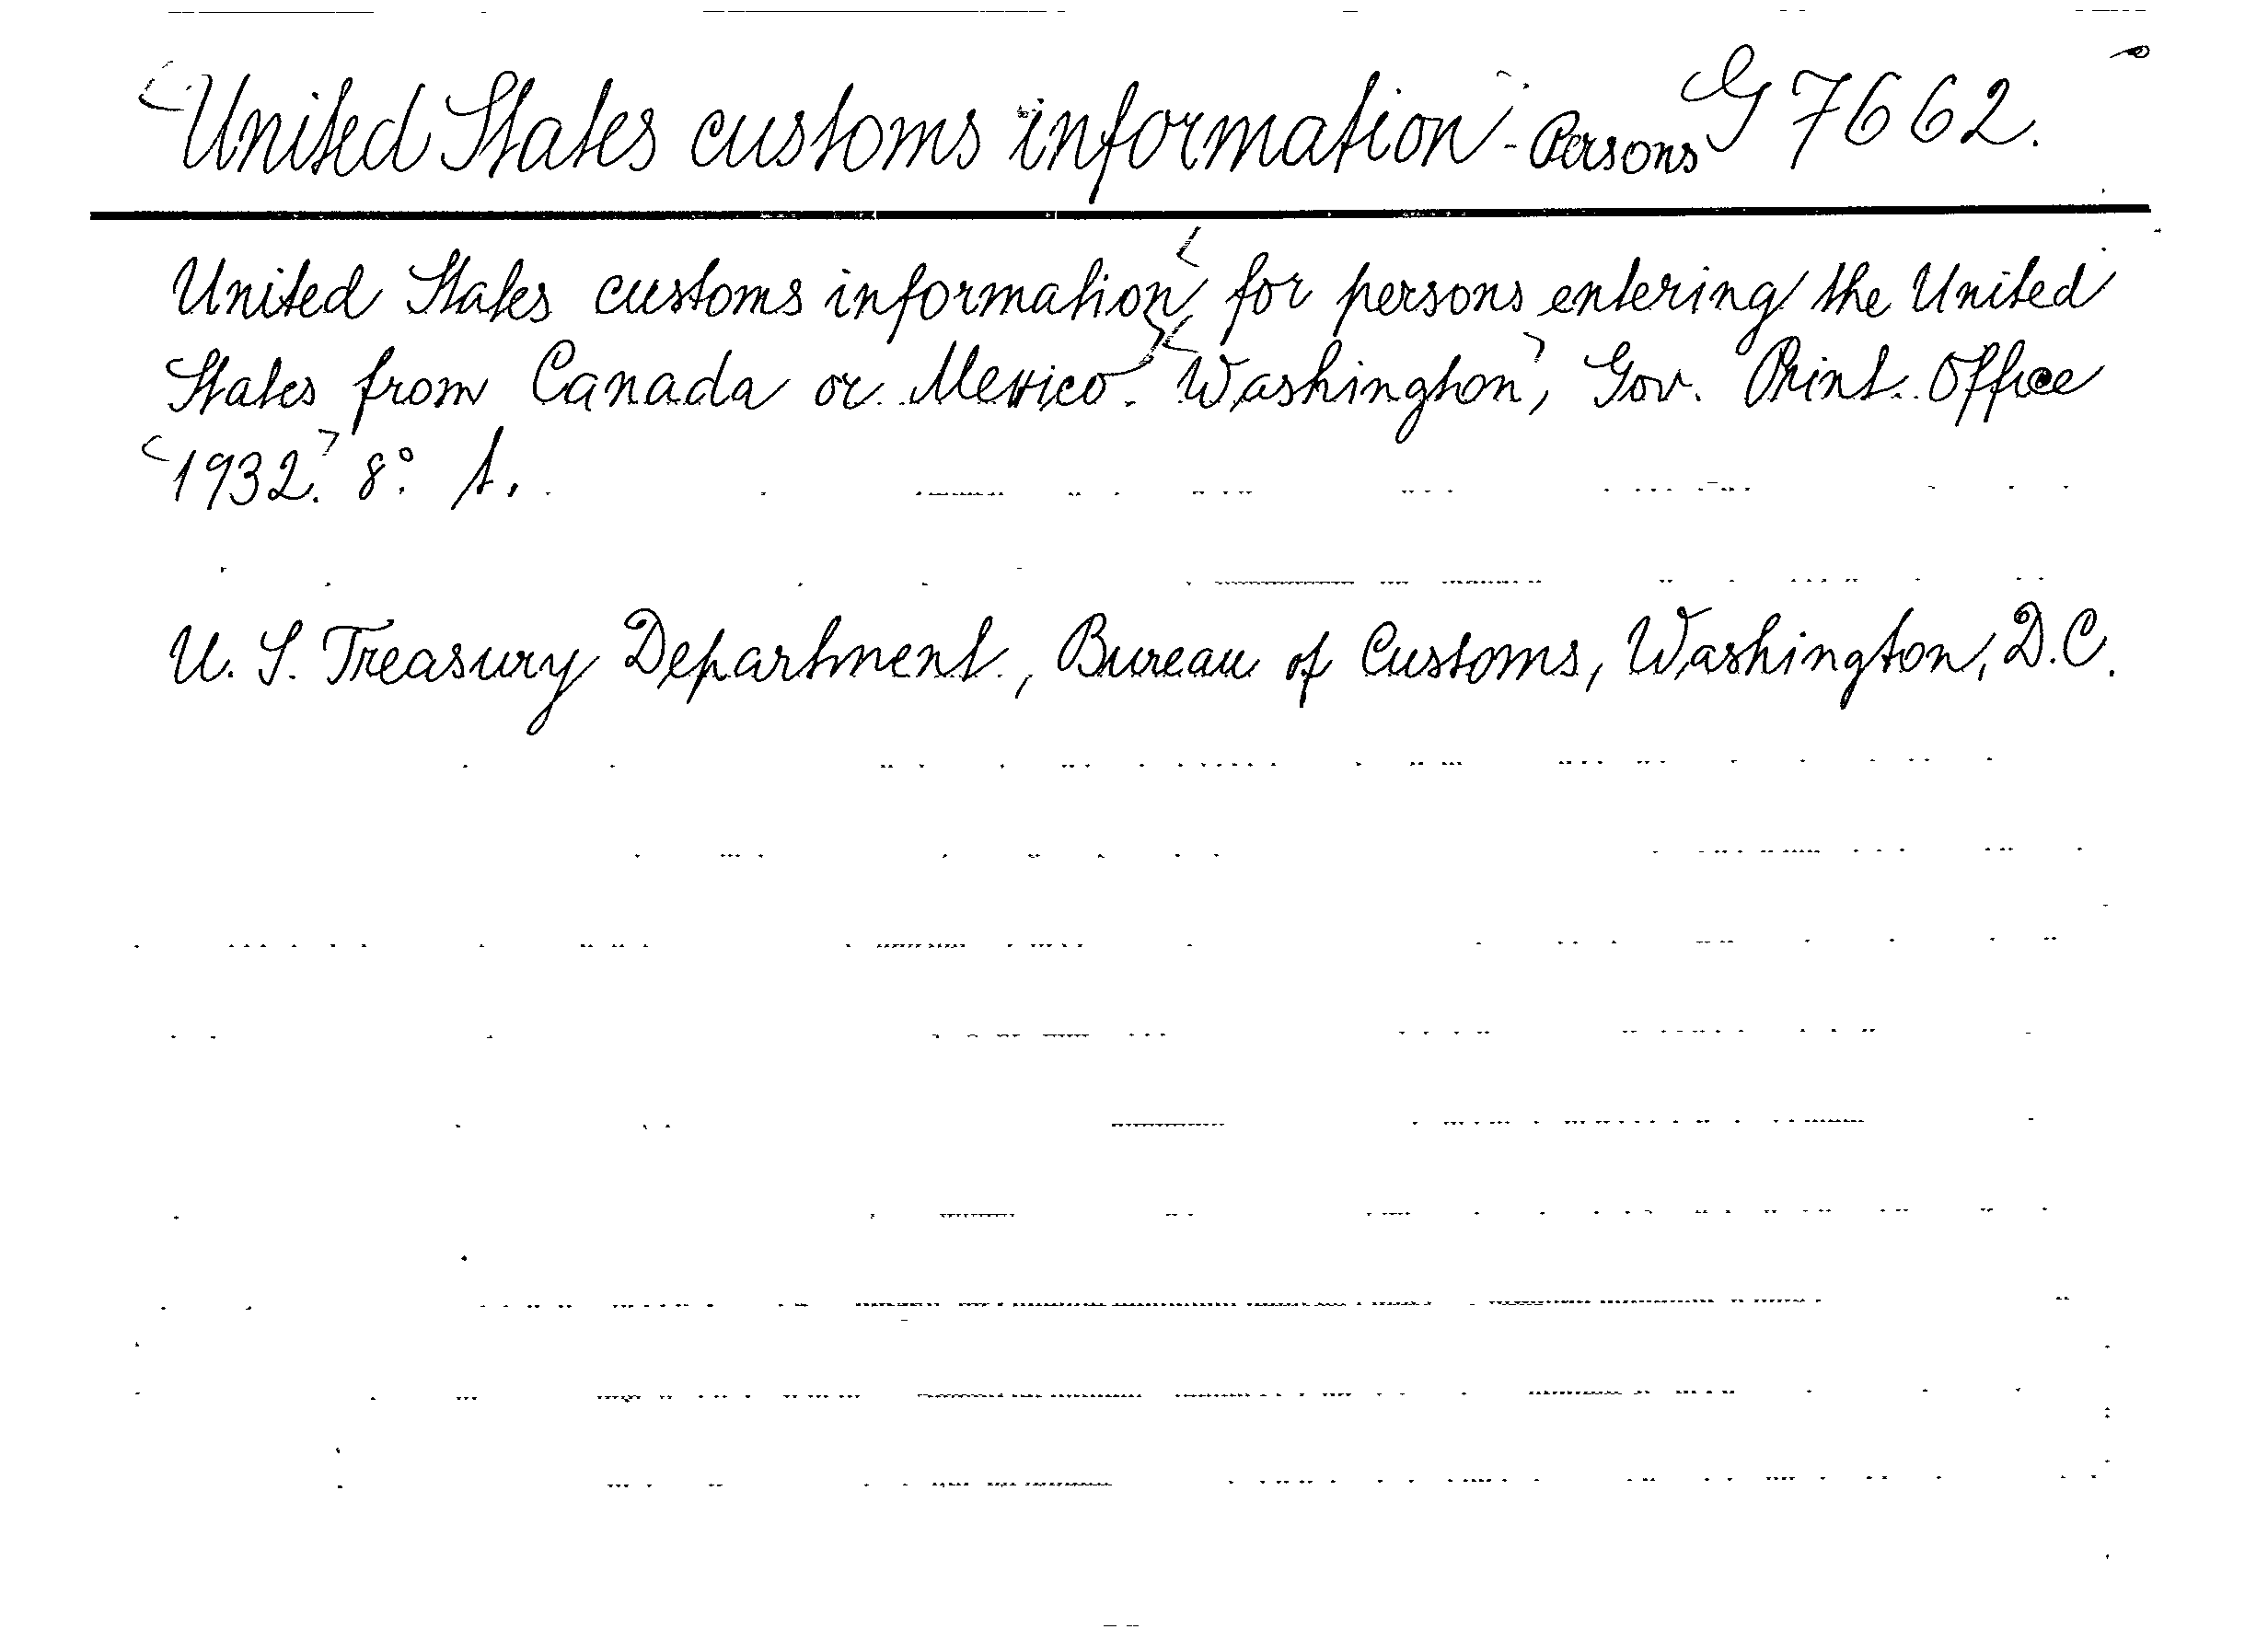 United States customs information - Persons G 7662.
United States customs information for persons entering the United
States from Canada or Mexico. Washington, Gov. Print. Office
1932. 8° s.
U. S. Treasury Department, Bureau of Customs, Washington, D.C.